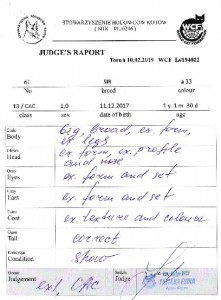 STOWARZYSZENIE HODOWCÓW KOTÓW
JUDGE'S RAPORT
Toruń 10.02.2019 WCF
61 SIB a 33
No breed colour
13 / CAC 1,0 11.12.2017 1 y 1 m 30 d
class sex date of birth age
Body big, broad, ex. form,
ex legs
Head ex. form, ex. profile
and nose
Eyes ex. form and set
Ears ex. form and set
Coat ex. texture and colour
Tail correct
Condition show
Judgement ex1, CAC
Judge